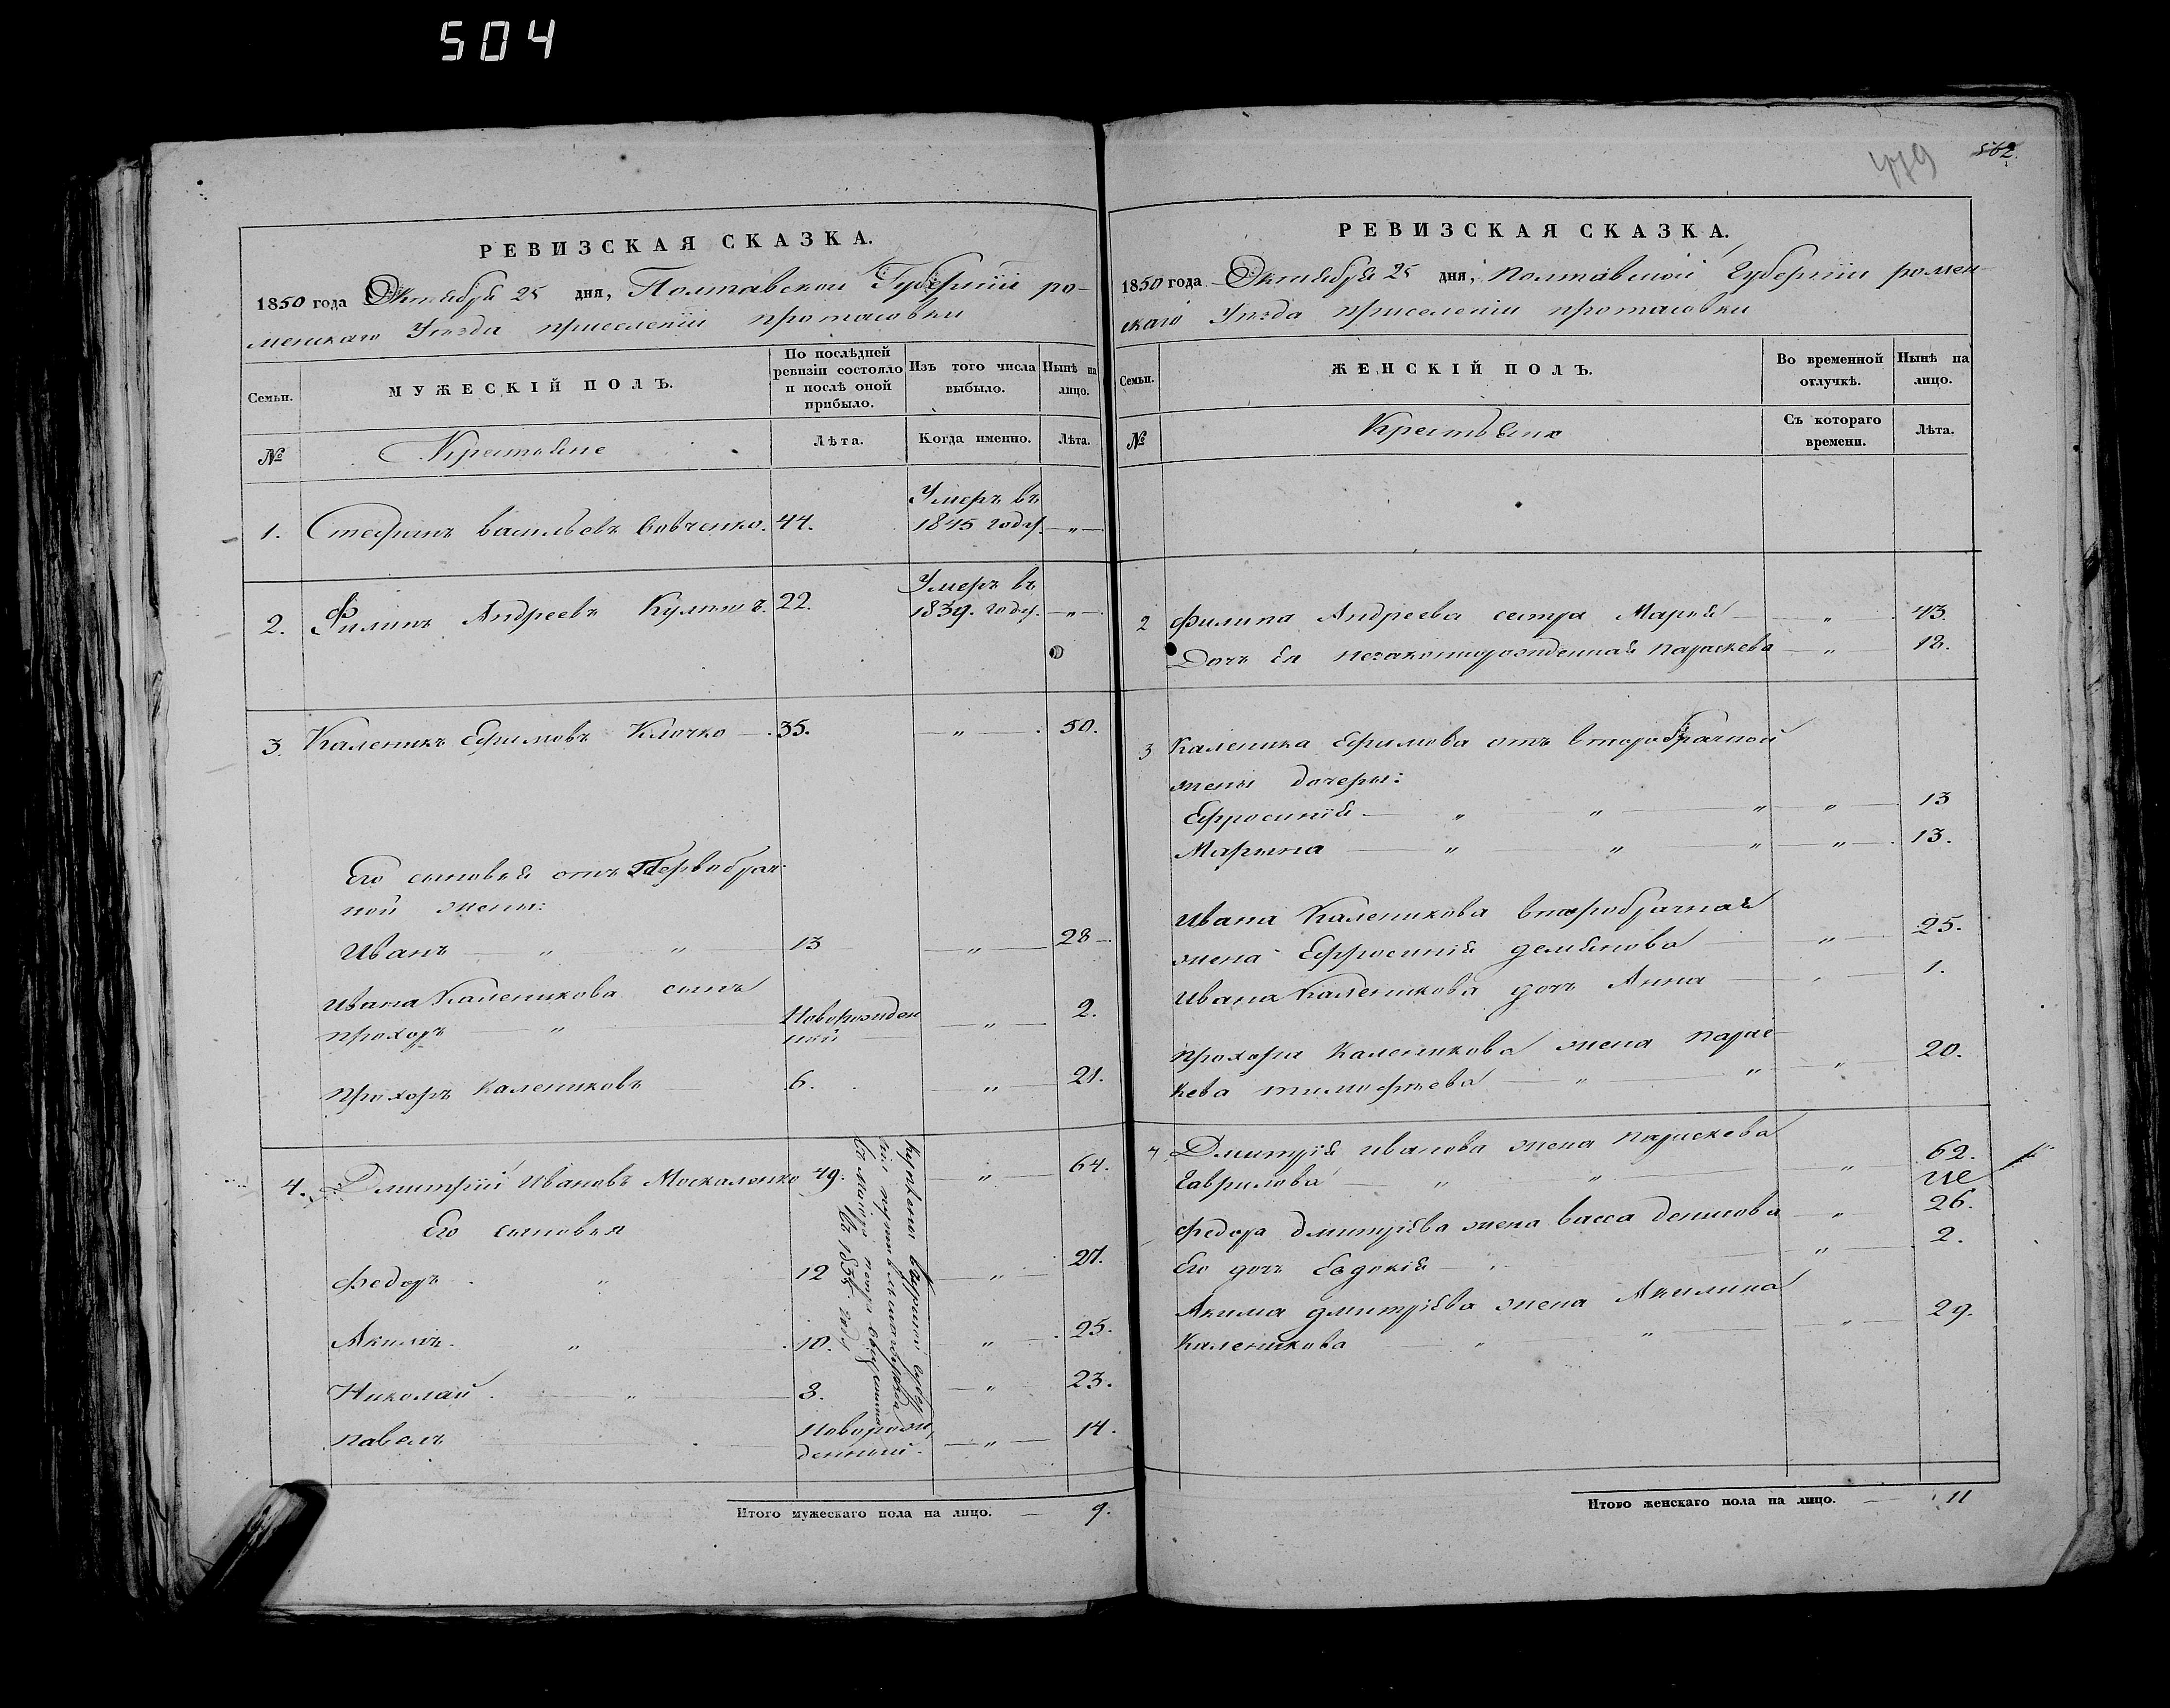 504
479
562.
РЕВИЗСКАЯ СКАЗКА.
1850 года Октября 25 дня, Полтавской Губерніи ро-
менскаго Уѣзда приселенія Протасовки
Семьи.
МУЖЕСКІЙ ПОЛЪ.
По послѣдней ревизіи состояло и послѣ оной прибыло.
Изъ того числа выбыло.
Нынѣ на лицо.
№
Крестьяне
Лѣта.
Когда именно.
Лѣта.
1. Стефанъ Васильевъ Вовченко. 44. Умеръ въ 1845 году. — „ —
2. Филипъ Андреевъ Кулишъ. 22. Умеръ въ 1839. году. — „ —
3. Каленикъ Ефимовъ Клочко — 35. — „ 50.
Его сыновья отъ Первобрач
ной жены:
Иванъ — „ „ — 13 — „ — 28 —
Ивана Каленикова сынъ
Прохоръ — „ — Новорожден ный — „ — 2.
Прохоръ Калениковъ — 6. — „ — 21.
4. Дмитрій Ивановъ Москаленко 49. — „ — 64.
Его сыновья
Федоръ „ 12 — „ — 27.
Акимъ. „ 10. „ 25.
Николай „ 8. — „ 23.
Павелъ — Новорож, денный. — „ — 14.
въ 1835 году
Итого мужескаго пола на лицо. — 9.
РЕВИЗСКАЯ СКАЗКА.
1850 года Октября 25 дня, Полтавской Губерніи ромен-
скаго Уѣзда приселенія Протасовки
Семьи.
ЖЕНСКІЙ ПОЛЪ.
Во временной отлучкѣ.
Нынѣ на лицо.
№
Съ котораго времени.
Лѣта.
2 Филипа Андреева сестра Марья — „ 43.
Дочь Ея незаконнорожденная Параскева — „ — 18.
3 Каленика Ефимова отъ второбрачной
жены дочери:
Ефросинія — „ — „ — „ — „ — 13
Марина — „ — „ — „ — „ — 13.
Ивана Каленикова второбрачная
жена Ефросинія Демянова — „ — 25.
Ивана Каленикова дочь Анна — „ — 1.
Прохора Каленикова жена Парас-
кева Тимофѣева — „ — „ — „ — 20.
4 Дмитрія Иванова жена Параскева
Гаврилова — „ „ — „ — 62.
Федора Дмитріева жена Васса Денисова — „ 26.
Его дочь Евдокія — „ — 2.
Акима Дмитріева жена Акилина
Каленикова — „ „ — „ — 29.
Итого женскаго пола на лицо. — 11